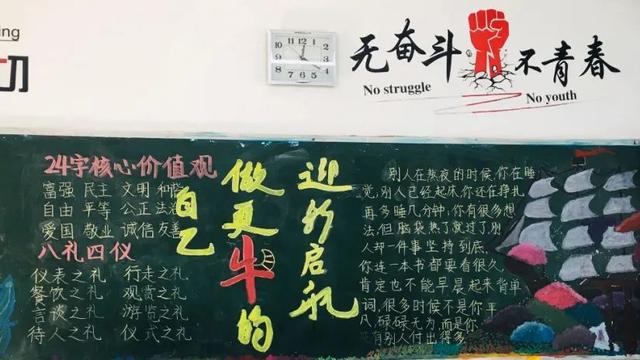 ing
无奋斗 不青春
No struggle
No youth
24字核心价值观
富强 民主 文明 和谐
自由 平等 公正 法
爱国 敬业 诚信 友善
八礼四仪
仪表之礼 行走之礼
餐饮之礼 观赏之礼
言谈之礼 游览之礼
待人之礼 仪式之礼
迎新启航
做更牛的
自己
别人在熬夜的时候,你在睡
觉,别人已经起床,你还在挣扎
再多睡几分钟,你有很多想
法,但脑袋热了就过了,别
人却一件事坚持到底.
你连一本书都要看很久,
肯定也不能早晨起来背单
词,很多时候不是你平
凡,碌碌无为,而是你
有别人付出得多